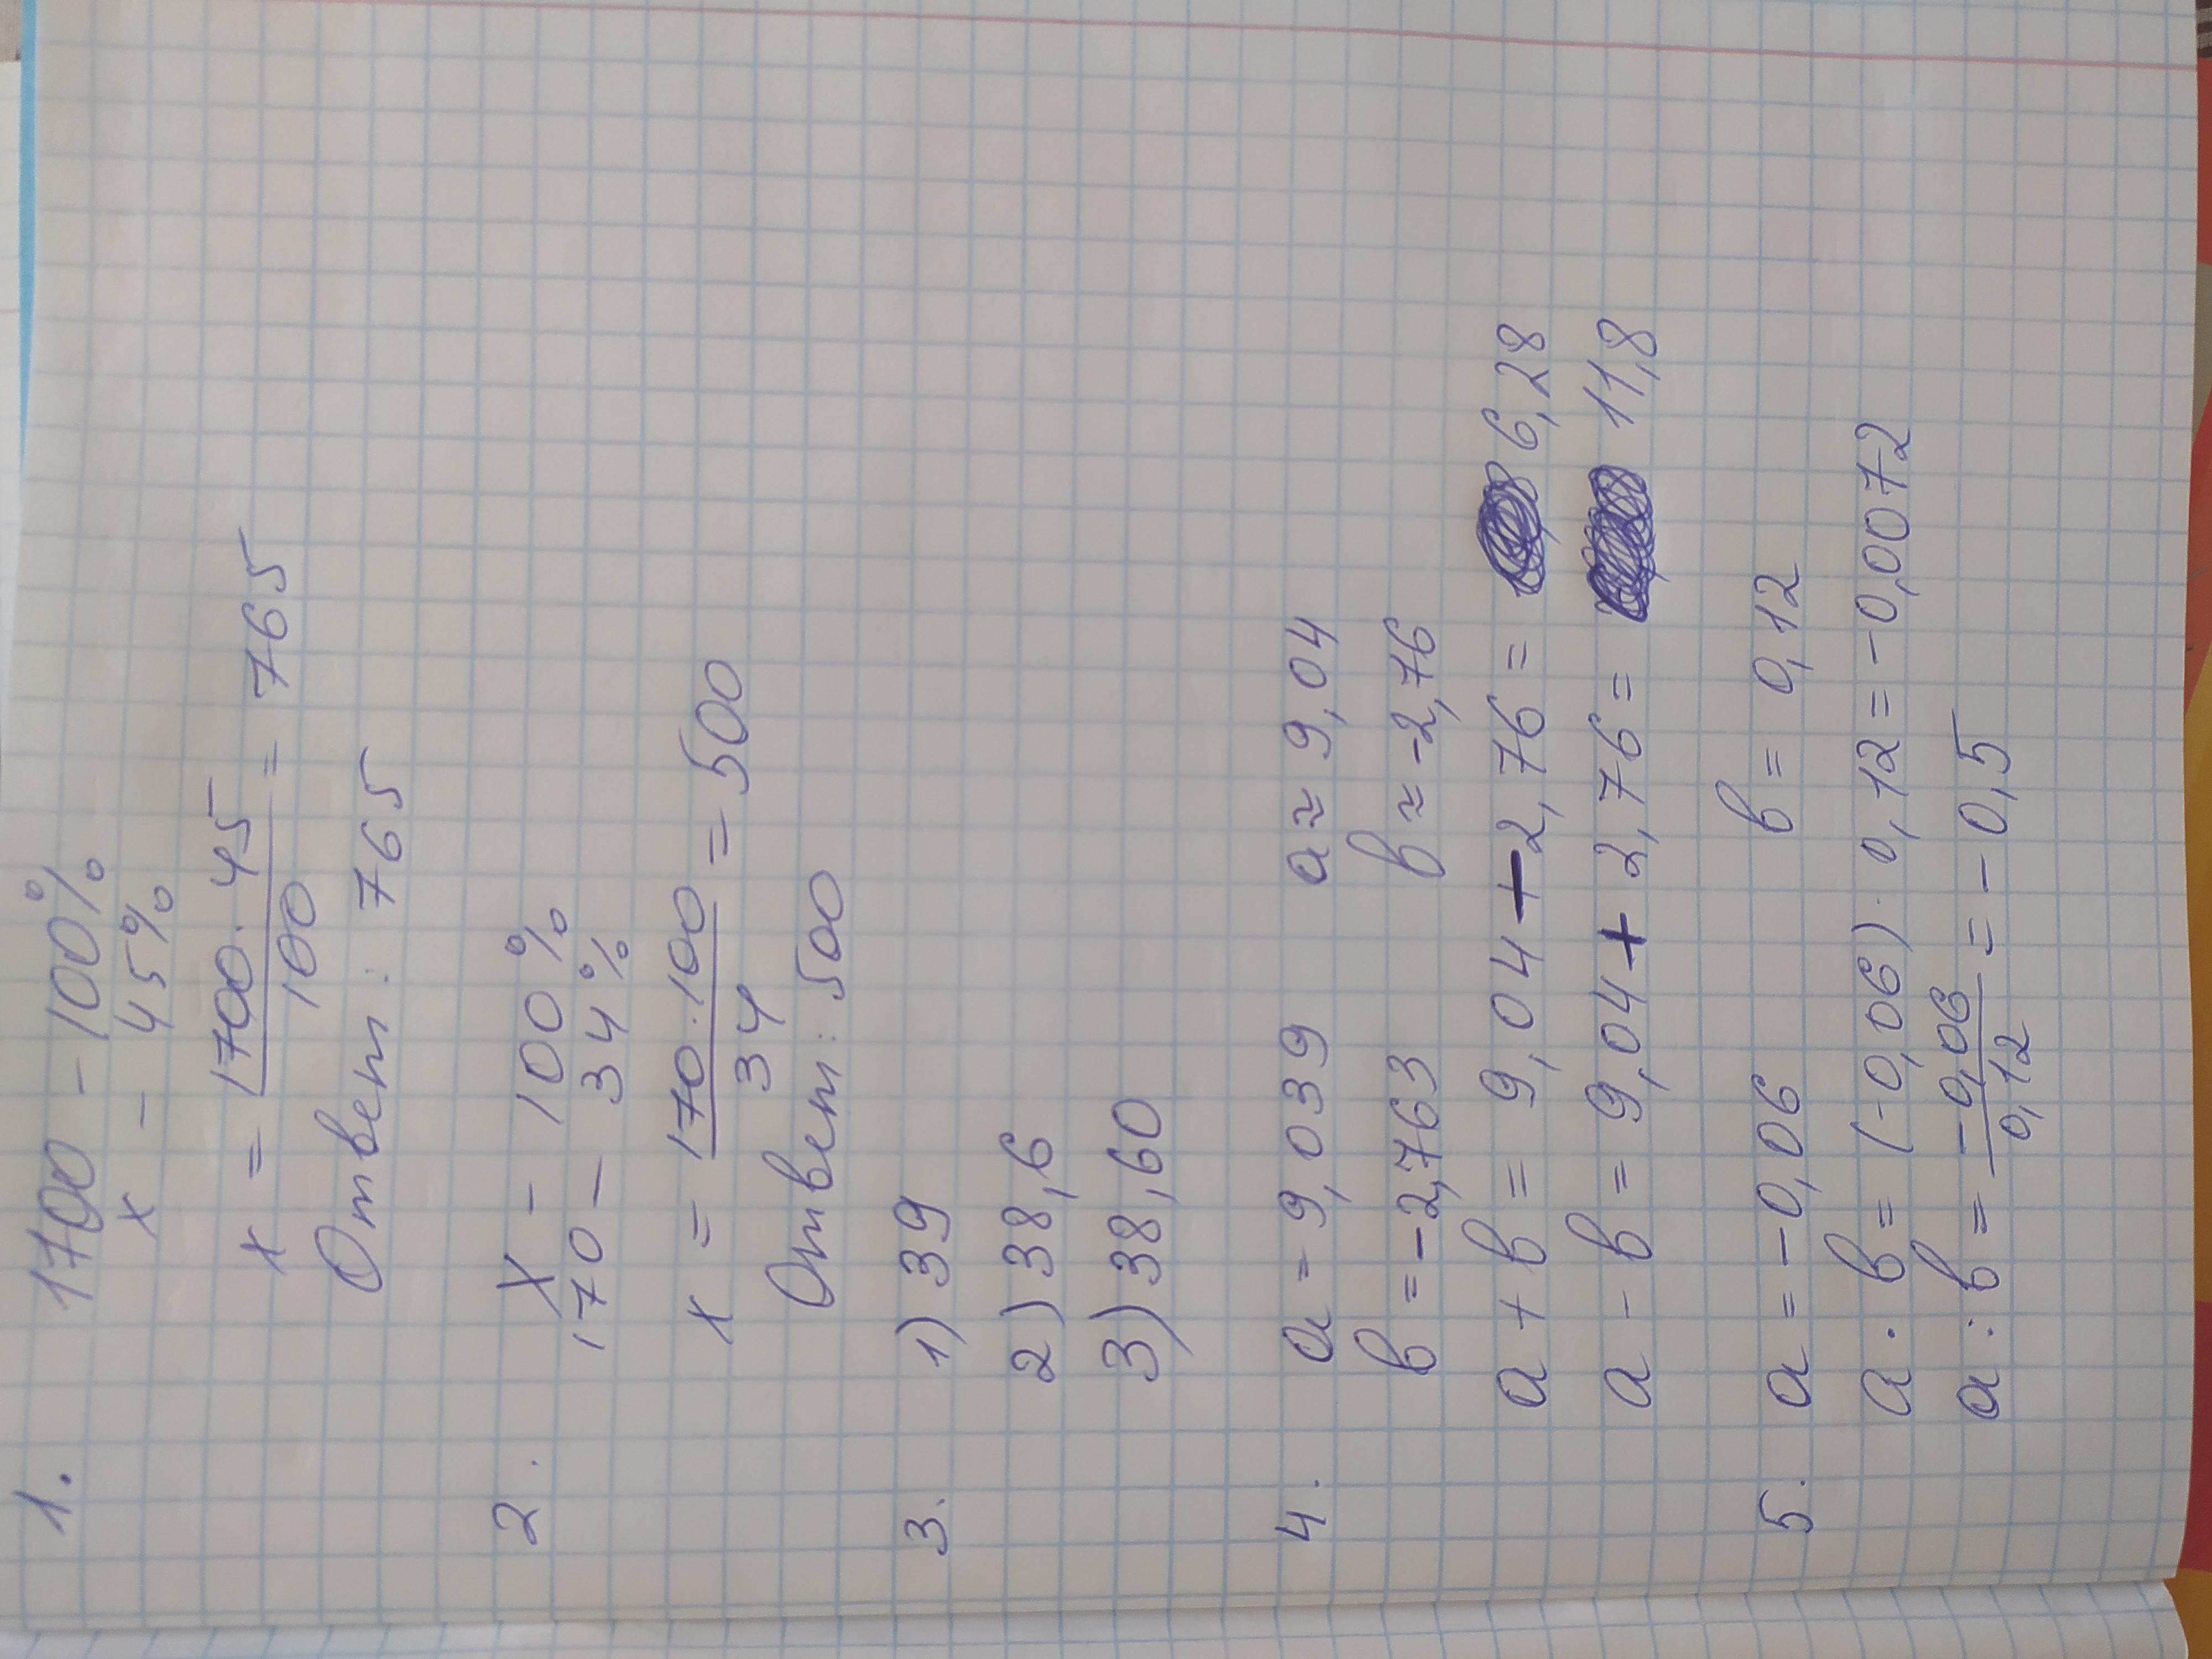 1. 1700 - 100%
x - 45%
x = 1700 · 45 / 100 = 765
Ответ: 765
2. X - 100%
170 - 34%
x = 170 · 100 / 34 = 500
Ответ: 500
3. 1) 39
2) 38,6
3) 38,60
4. a = 9,039 a ≈ 9,04
в = -2,763 в ≈ -2,76
a + в = 9,04 + 2,76 = 6,28
a - в = 9,04 + 2,76 = 11,8
5. a = -0,06 в = 0,12
a · в = (-0,06) · 0,12 = -0,0072
a : в = -0,06 / 0,12 = -0,5